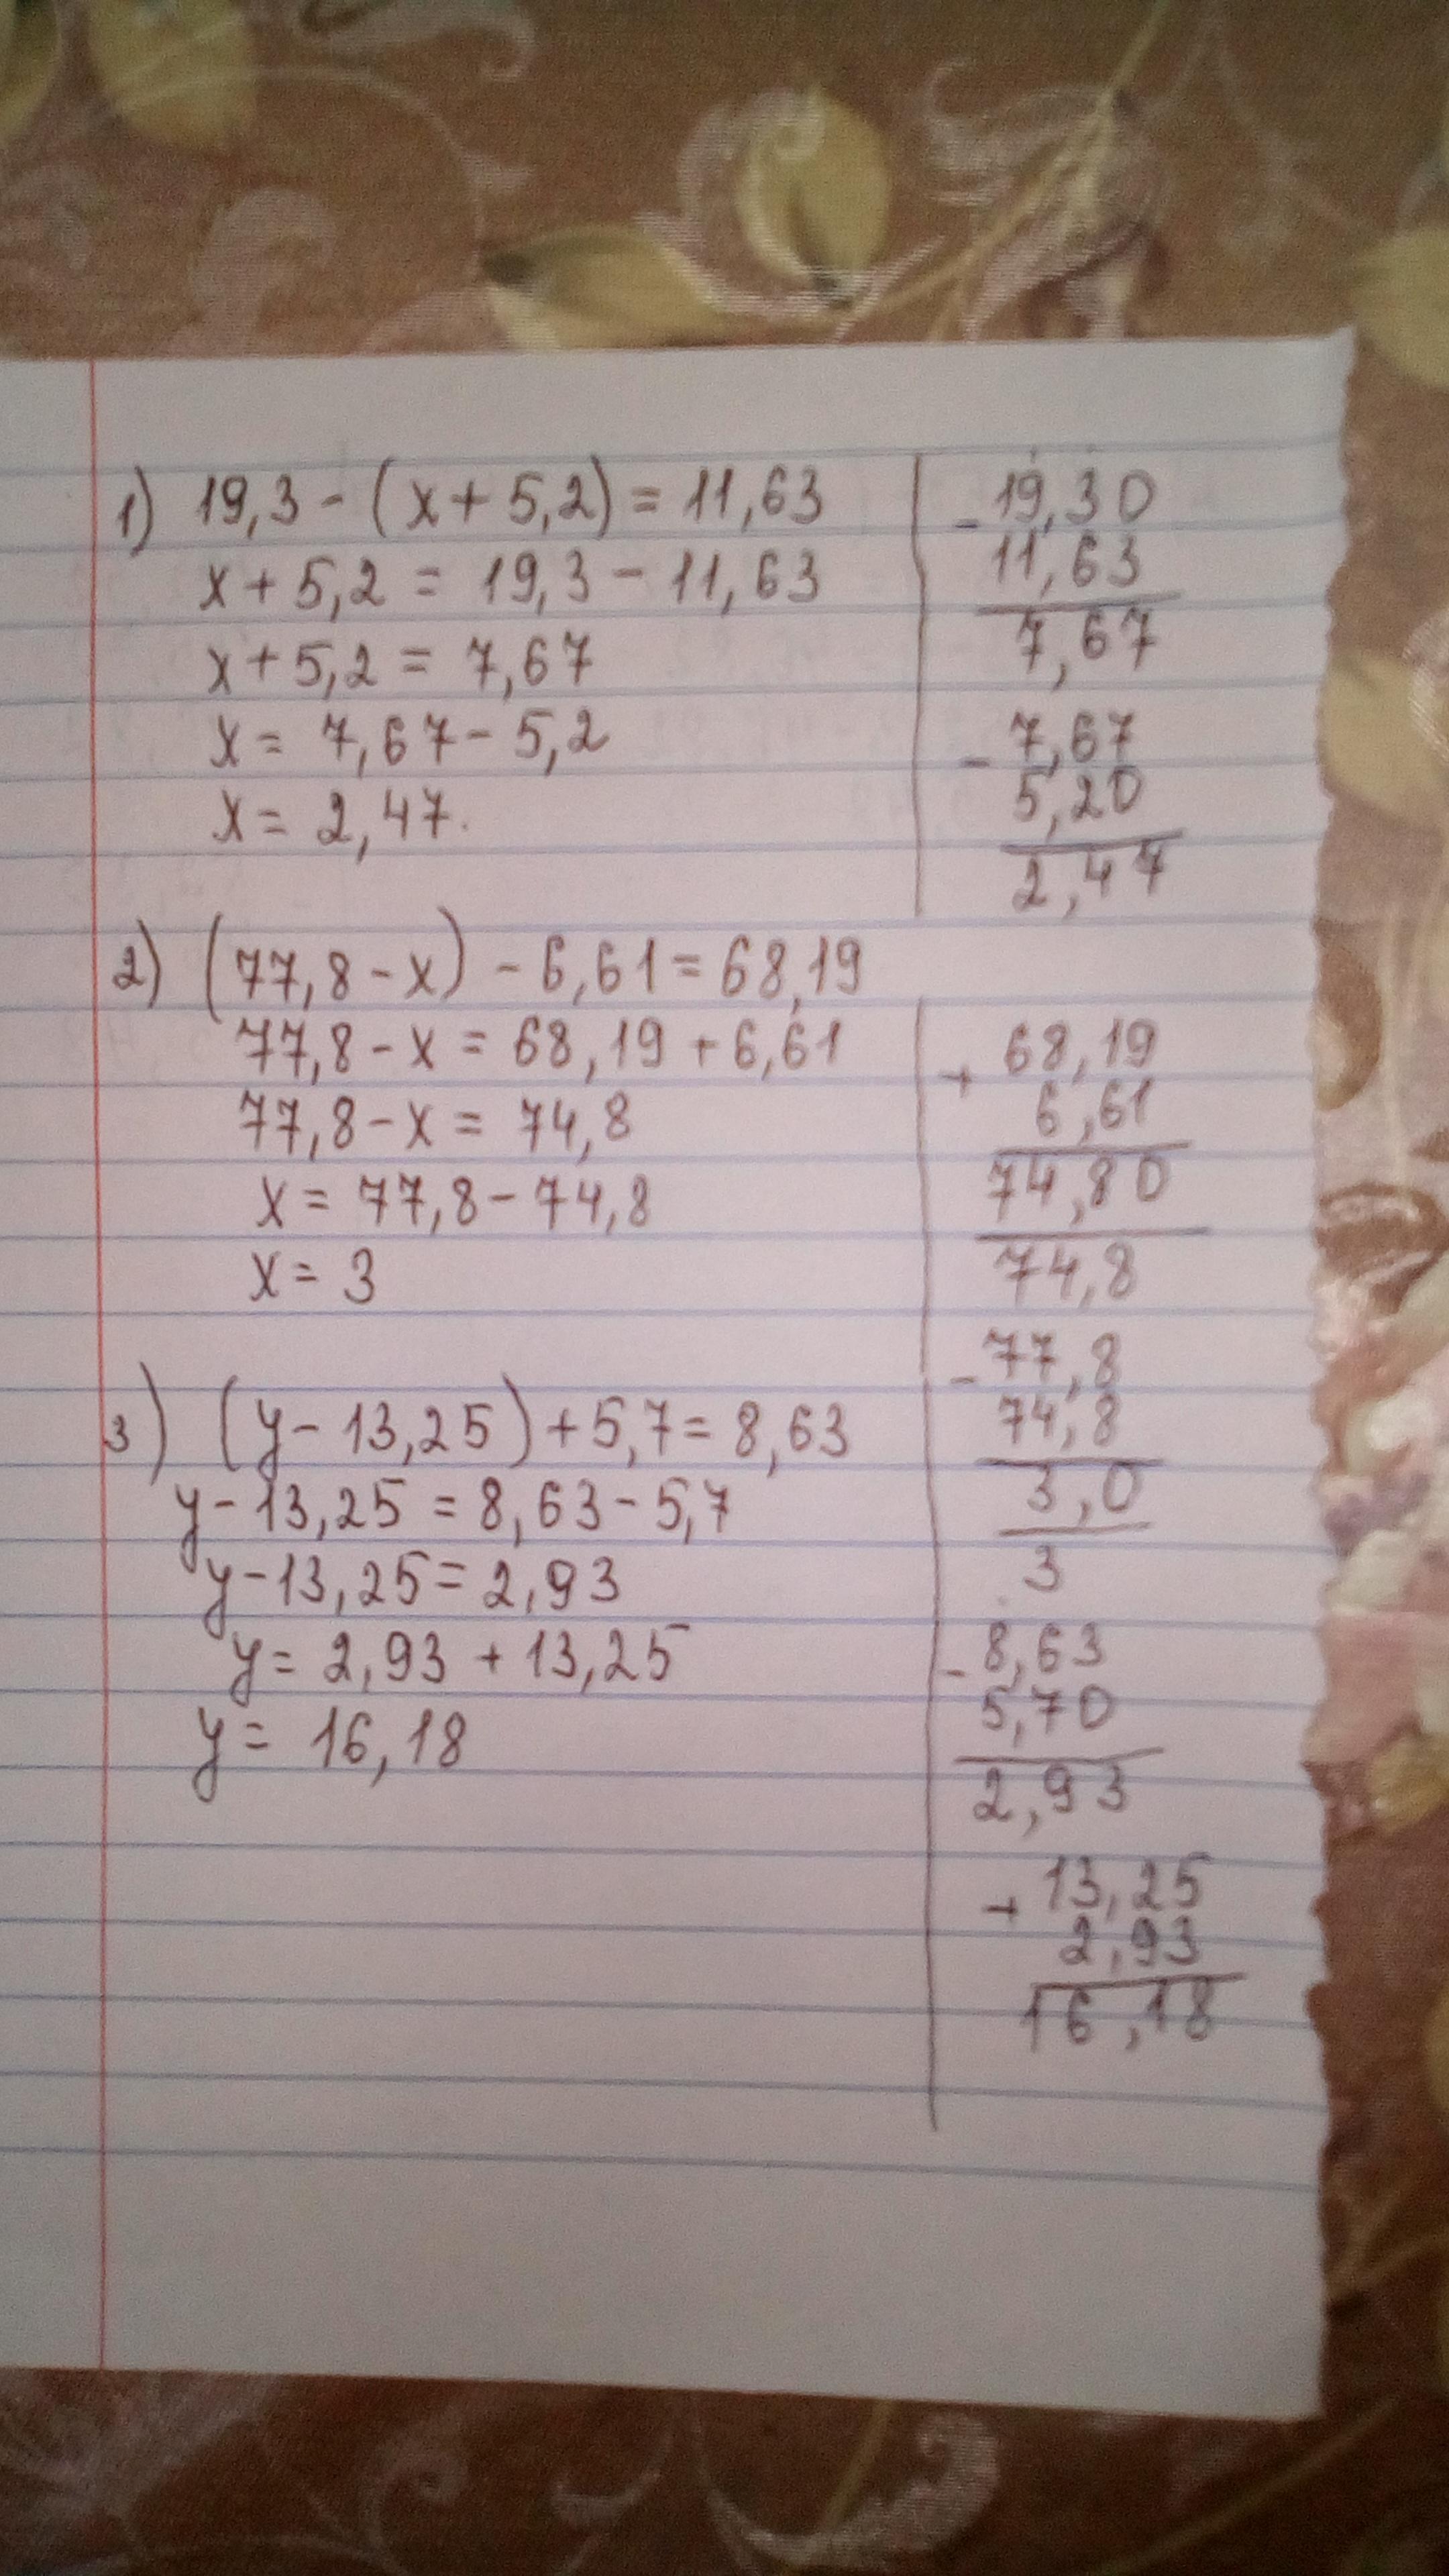 1) 19,3 - (x + 5,2) = 11,63
x + 5,2 = 19,3 - 11,63
x + 5,2 = 7,67
x = 7,67 - 5,2
x = 2,47.
- 19,30
11,63
7,67
- 7,67
5,20
2,47
2) (77,8 - x) - 6,61 = 68,19
77,8 - x = 68,19 + 6,61
77,8 - x = 74,8
x = 77,8 - 74,8
x = 3
+ 68,19
6,61
74,80
74,8
- 77,8
74,8
3,0
3
3) (y - 13,25) + 5,7 = 8,63
y - 13,25 = 8,63 - 5,7
y - 13,25 = 2,93
y = 2,93 + 13,25
y = 16,18
- 8,63
5,70
2,93
+ 13,25
2,93
16,18